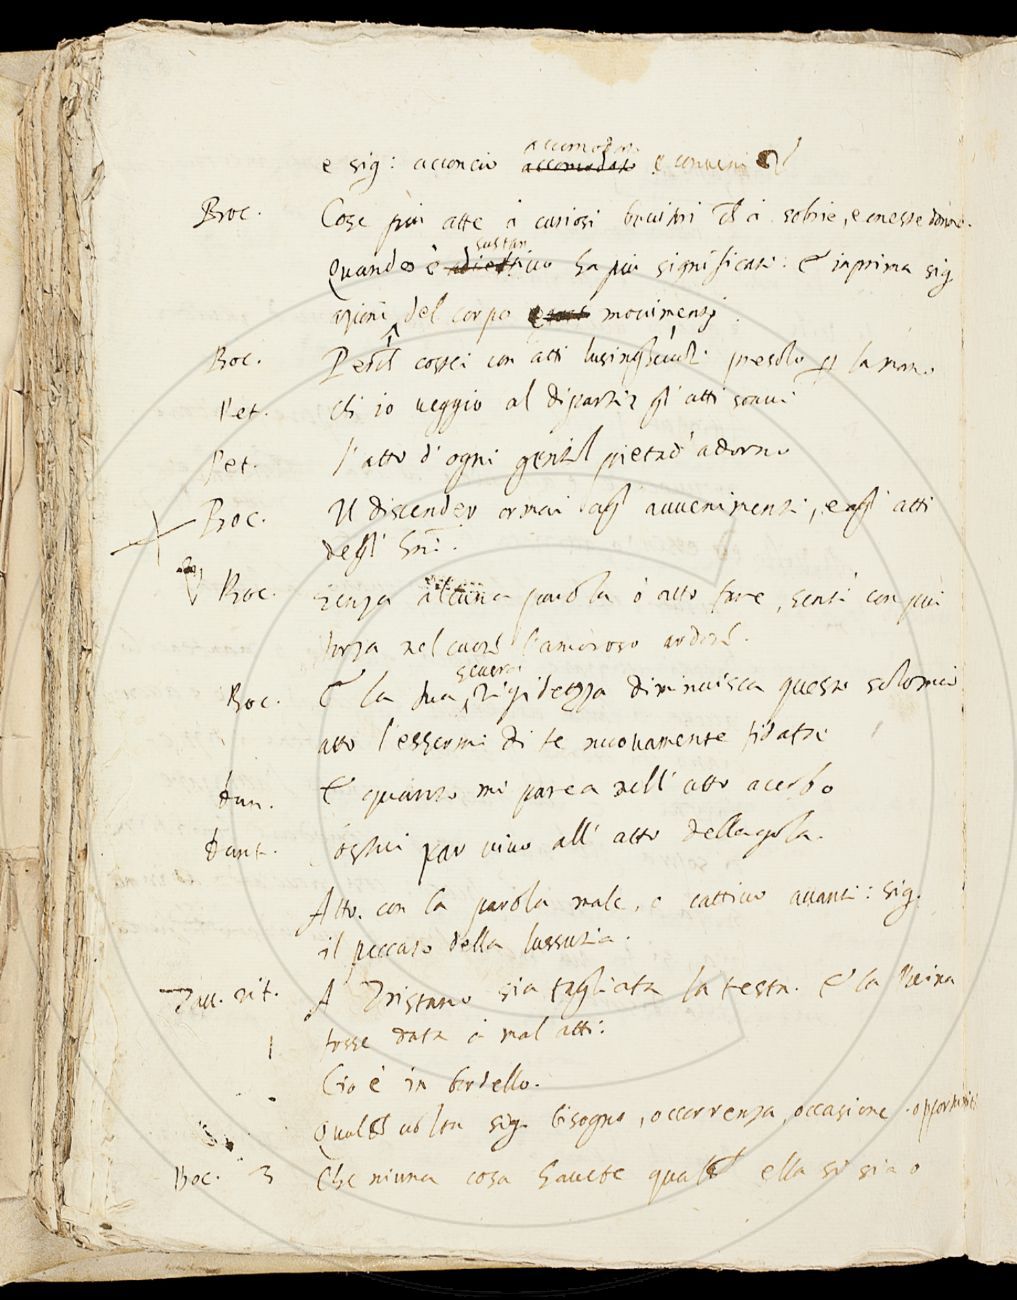 e sig: acconcio accomodato e conveni
Boc. Cose più atte à curiosi bevitori ch' à sobrie, e oneste donne.
sustan
Quando è adiettivo ha più significati: E inprima sig
azioni del corpo e movimenti.
Boc. costei con atti lusinghevoli presolo la man.
Pet. Ch' io veggio al dipartir gl' atti soavi
Pet. l' atto d' ogni gentil pietad' adorno
Boc. Il discender ormai agl' avvenimenti, e agl' atti
degl'
Boc. Senza alcuna parola ò atto fare, sentì con più
forza nel cuore l'amoroso ardore.
severa
Boc. E la sua rigidezza diminuisca questo solo mio
atto l'essermi di te nuovamente fidata
Dan. E quanto mi parea nell' atto acerbo
Dant. par vivo all' atto della gola.
Atto. con la parola male, o cattivo avanti: sig.
il peccato della lussuria.
Tav. rit. A Tristano sia tagliata la testa. E la Reina
fosse data à mal' atti:
Cio è in bordello.
sig. bisogno, occorrenza, occasione
Boc. 3 Che niuna cosa havete qual' ella si sia o